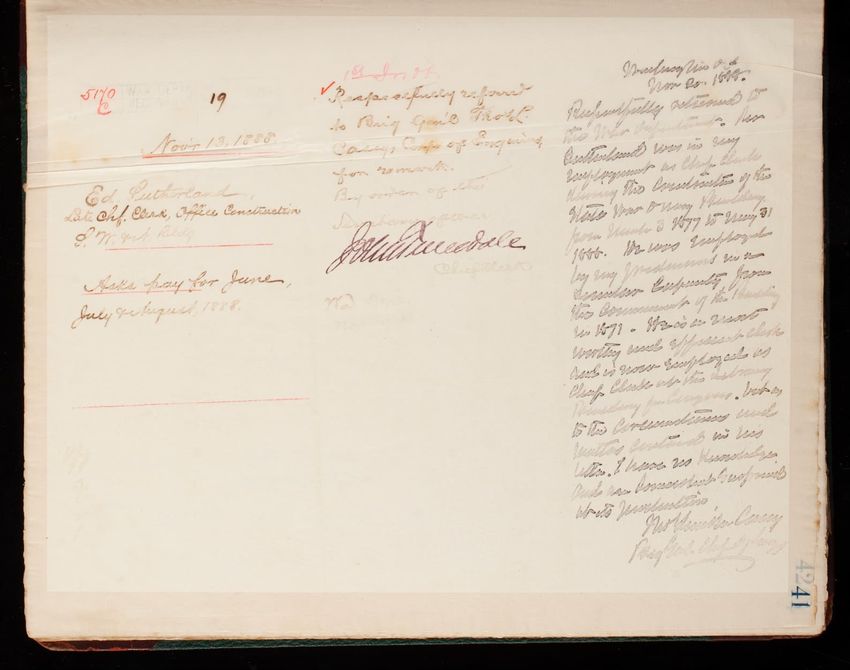 5170
C
WAR DEPT
19
Nov'r 13, 1888.
Ed Sutherland,
Late Chf. Clerk, Office Construction
S. W. & N Bldg
Asks pay for June,
July & August, 1888.
1st
Respectfully referred
to Brig Gen'l Thos L.
Casey, Corps of Engineers
for remark.
By order of the
Secretary of War
John Tweedale
Chief Clerk
Washington
Nov 20, 1888.
Respectfully returned to
the War Department. Mr
Sutherland was in my
employment as Chief Clerk
during the Construction of the
State War & Navy Building
from March 3 1877 to May 31
1888. He was employed
by my predecessor in a
similar capacity from
the commencement of the Building
in 1871. He is a most
worthy and efficient clerk
and is now employed as
Chief Clerk at the Library
Building for Congress, but as
to the circumstances and
matter contained in his
letter, I have no knowledge
and am
at its
Thos Lincoln Casey
Brig Genl, Chf of Eng
4241